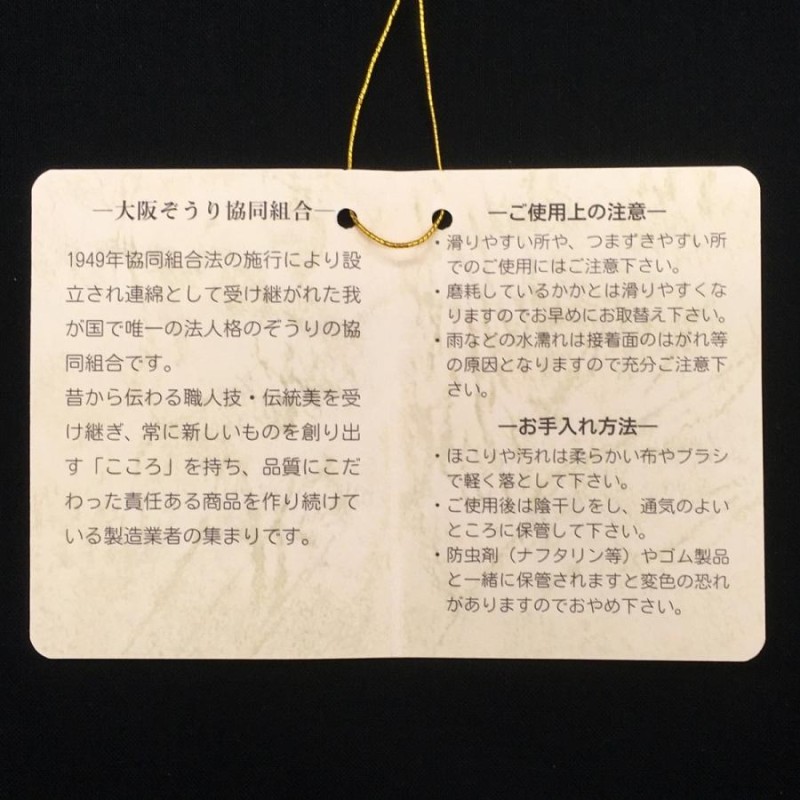 ―大阪ぞうり協同組合―
1949年協同組合法の施行により設
立され連綿として受け継がれた我
が国で唯一の法人格のぞうりの協
同組合です。
昔から伝わる職人技・伝統美を受
け継ぎ、常に新しいものを創り出
す「こころ」を持ち、品質にこだ
わった責任ある商品を作り続けて
いる製造業者の集まりです。
―ご使用上の注意―
・滑りやすい所や、つまずきやすい所
でのご使用にはご注意下さい。
・磨耗しているかかとは滑りやすくな
りますのでお早めにお取替え下さい。
・雨などの水濡れは接着面のはがれ等
の原因となりますので充分ご注意下
さい。
―お手入れ方法―
・ほこりや汚れは柔らかい布やブラシ
で軽く落として下さい。
・ご使用後は陰干しをし、通気のよい
ところに保管して下さい。
・防虫剤（ナフタリン等）やゴム製品
と一緒に保管されますと変色の恐れ
がありますのでおやめ下さい。